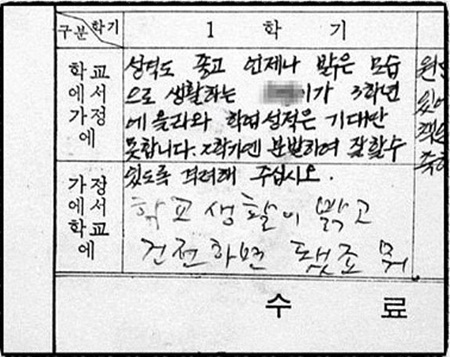 구분 학기
1 학 기
학교
에서
가정
에
성격도 좋고 언제나 밝은 모습
으로 생활하는 이가 3학년
에 올라와 학업성적은 기대만
못합니다. 2학기엔 분발하여 잘할수
있도록 격려해 주십시오.
가정
에서
학교
에
학교 생활이 밝고
건전하면 됐죠 뭐.
수 료